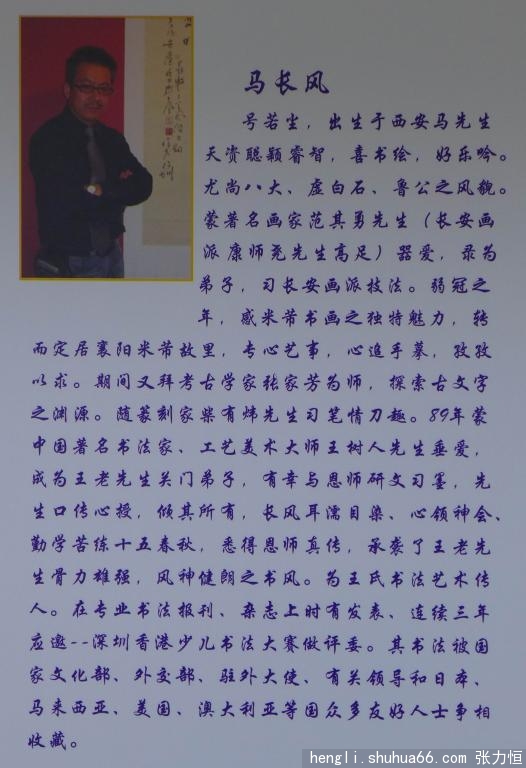 马长风
号若尘，出生于西安马先生
天资聪颖睿智，喜书绘，好乐吟。
尤尚八大、虚白石、鲁公之风貌。
蒙著名画家范其勇先生（长安画
派康师尧先生高足）器爱，录为
弟子，习长安画派技法。弱冠之
年，感米芾书画之独特魅力，转
而定居襄阳米芾故里，专心艺事，心追手摹，孜孜
以求。期间又拜考古学家张家芳为师，探索古文字
之渊源。随篆刻家柴有炜先生习笔情刀趣。89年蒙
中国著名书法家、工艺美术大师王树人先生垂爱，
成为王老先生关门弟子，有幸与恩师研文习墨，先
生口传心授，倾其所有，长风耳濡目染、心领神会、
勤学苦练十五春秋，悉得恩师真传，承袭了王老先
生骨力雄强，风神健朗之书风。为王氏书法艺术传
人。在专业书法报刊、杂志上时有发表、连续三年
应邀--深圳香港少儿书法大赛做评委。其书法被国
家文化部、外交部、驻外大使、有关领导和日本、
马来西亚、美国、澳大利亚等国众多友好人士争相
收藏。
hengli.shuhua66.com 张力恒